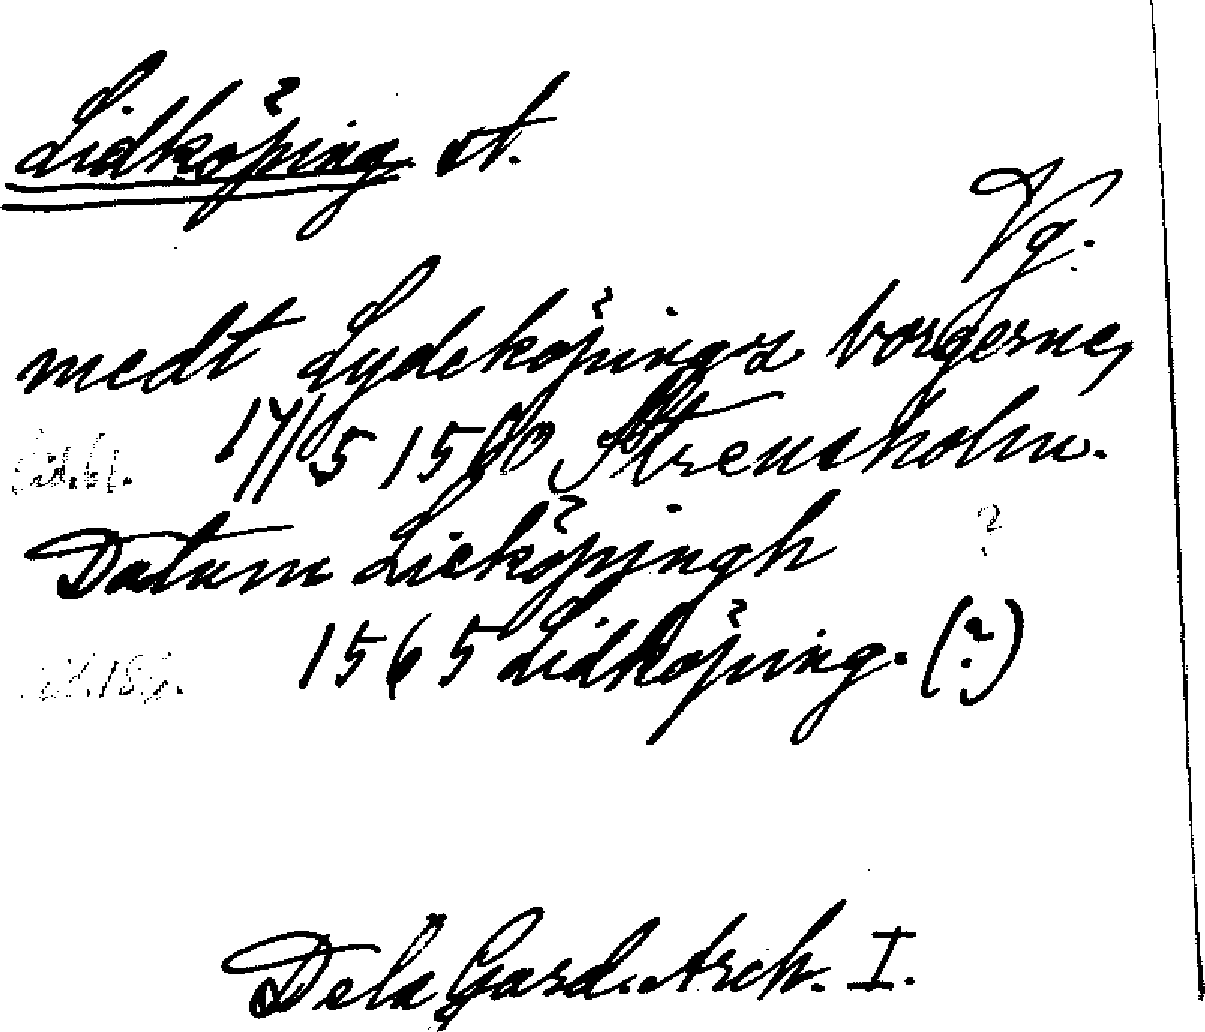 Lidköping st.
Vg.
medt Lydeköpingz borgerne,
17/5 1560 Strensholm.
Datum Lieköpingh ?
1565 Lidköping. (?)
De la Gard. Ark. I.